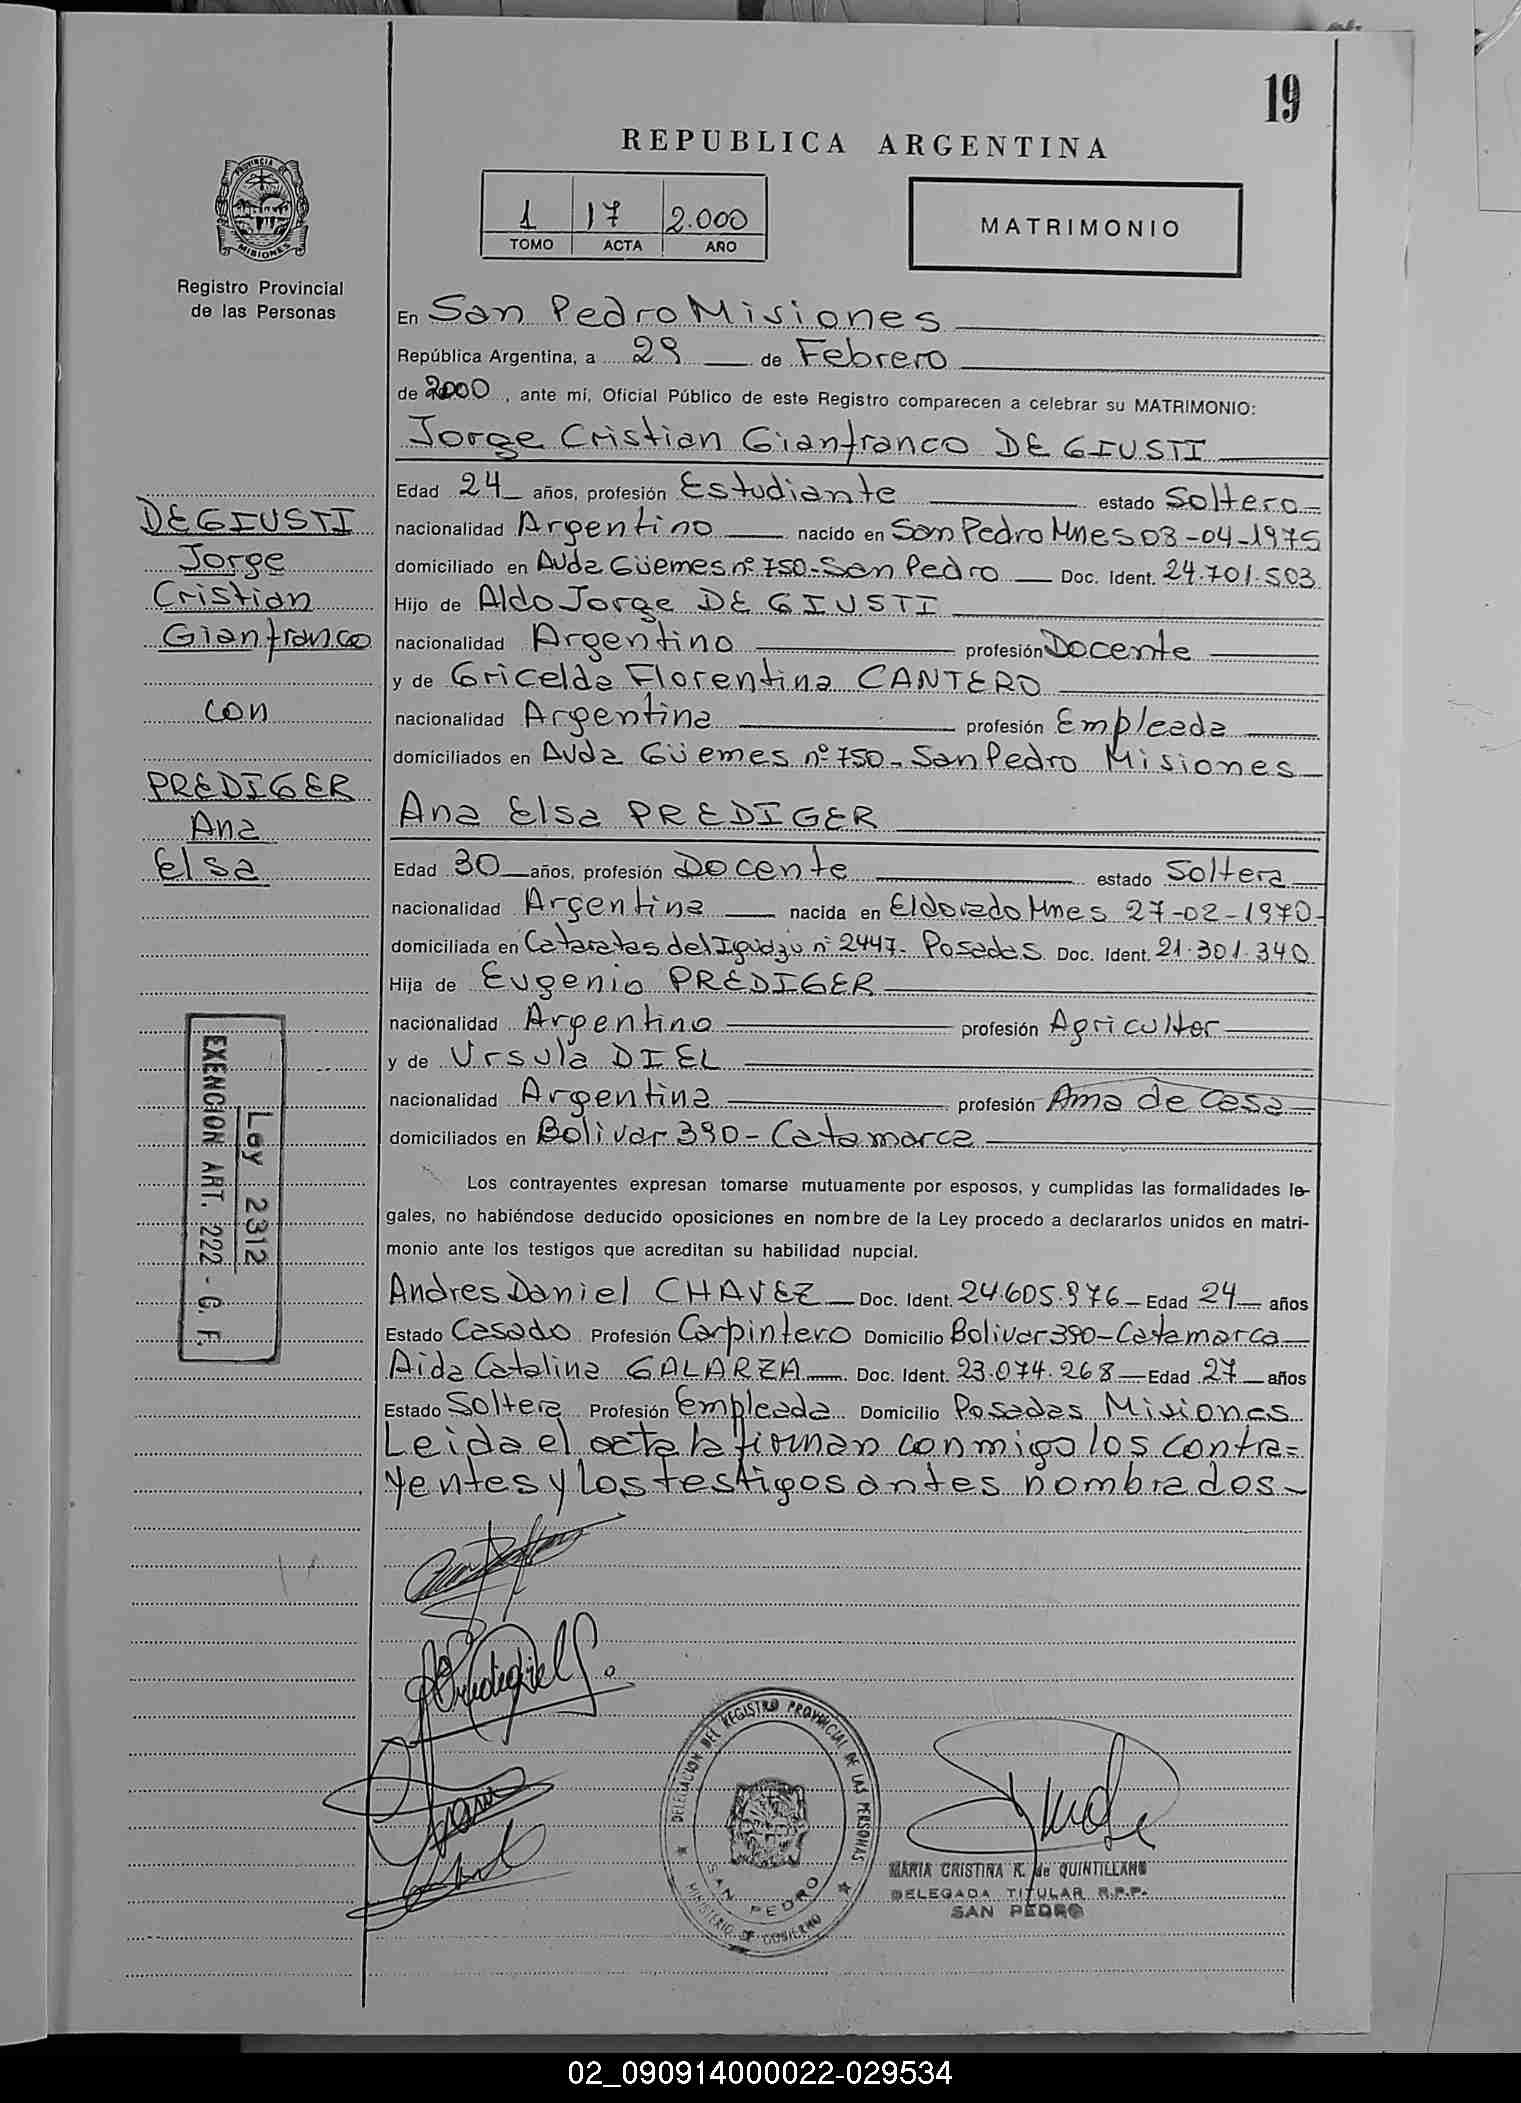 19
REPUBLICA ARGENTINA
PROVINCIA DE
MISIONES
Registro Provincial
de las Personas
1 17 2.000
TOMO ACTA AÑO
MATRIMONIO
En San Pedro Misiones
República Argentina, a 29 de Febrero
de 2000, ante mí, Oficial Público de este Registro comparecen a celebrar su MATRIMONIO:
Jorge Cristian Gianfranco DE GIUSTI
Edad 24 años, profesión Estudiante estado Soltero
nacionalidad Argentino nacido en San Pedro Mnes 03-04-1975
domiciliado en Avda Güemes nº 750-San Pedro Doc. Ident. 24.701.503
Hijo de Aldo Jorge DE GIUSTI
nacionalidad Argentino profesión Docente
y de Gricelda Florentina CANTERO
nacionalidad Argentina profesión Empleada
domiciliados en Avda Güemes nº 750-San Pedro Misiones
Ana Elsa PREDIGER
Edad 30 años, profesión Docente estado Soltera
nacionalidad Argentina nacida en Eldorado Mnes 27-02-1970-
domiciliada en Cataratas del Iguazu nº 2447- Posadas Doc. Ident. 21.301.340
Hija de Eugenio PREDIGER
nacionalidad Argentino profesión Agricultor
y de Ursula DIEL
nacionalidad Argentina profesión Ama de casa
domiciliados en Bolivar 390-Catamarca
Los contrayentes expresan tomarse mutuamente por esposos, y cumplidas las formalidades le-
gales, no habiéndose deducido oposiciones en nombre de la Ley procedo a declararlos unidos en matri-
monio ante los testigos que acreditan su habilidad nupcial.
Andres Daniel CHAVEZ Doc. Ident. 24.605.976- Edad 24 años
Estado Casado Profesión Carpintero Domicilio Bolivar 390-Catamarca
Aida Catalina GALARZA Doc. Ident. 23.074.268- Edad 27 años
Estado Soltera Profesión Empleada Domicilio Posadas Misiones
Leida el acta la firman conmigo los contra=
yentes y los testigos antes nombrados-
DE GIUSTI
Jorge
Cristian
Gianfranco
con
PREDIGER
Ana
Elsa
Ley 2312
EXENCION ART. 222 - G. F.
DELEGACION DEL REGISTRO PROVINCIAL DE LAS PERSONAS
SAN PEDRO
MINISTERIO DE GOBIERNO
MARIA CRISTINA R. de QUINTILLANO
DELEGADA TITULAR R.P.P.
SAN PEDRO
02_090914000022-029534